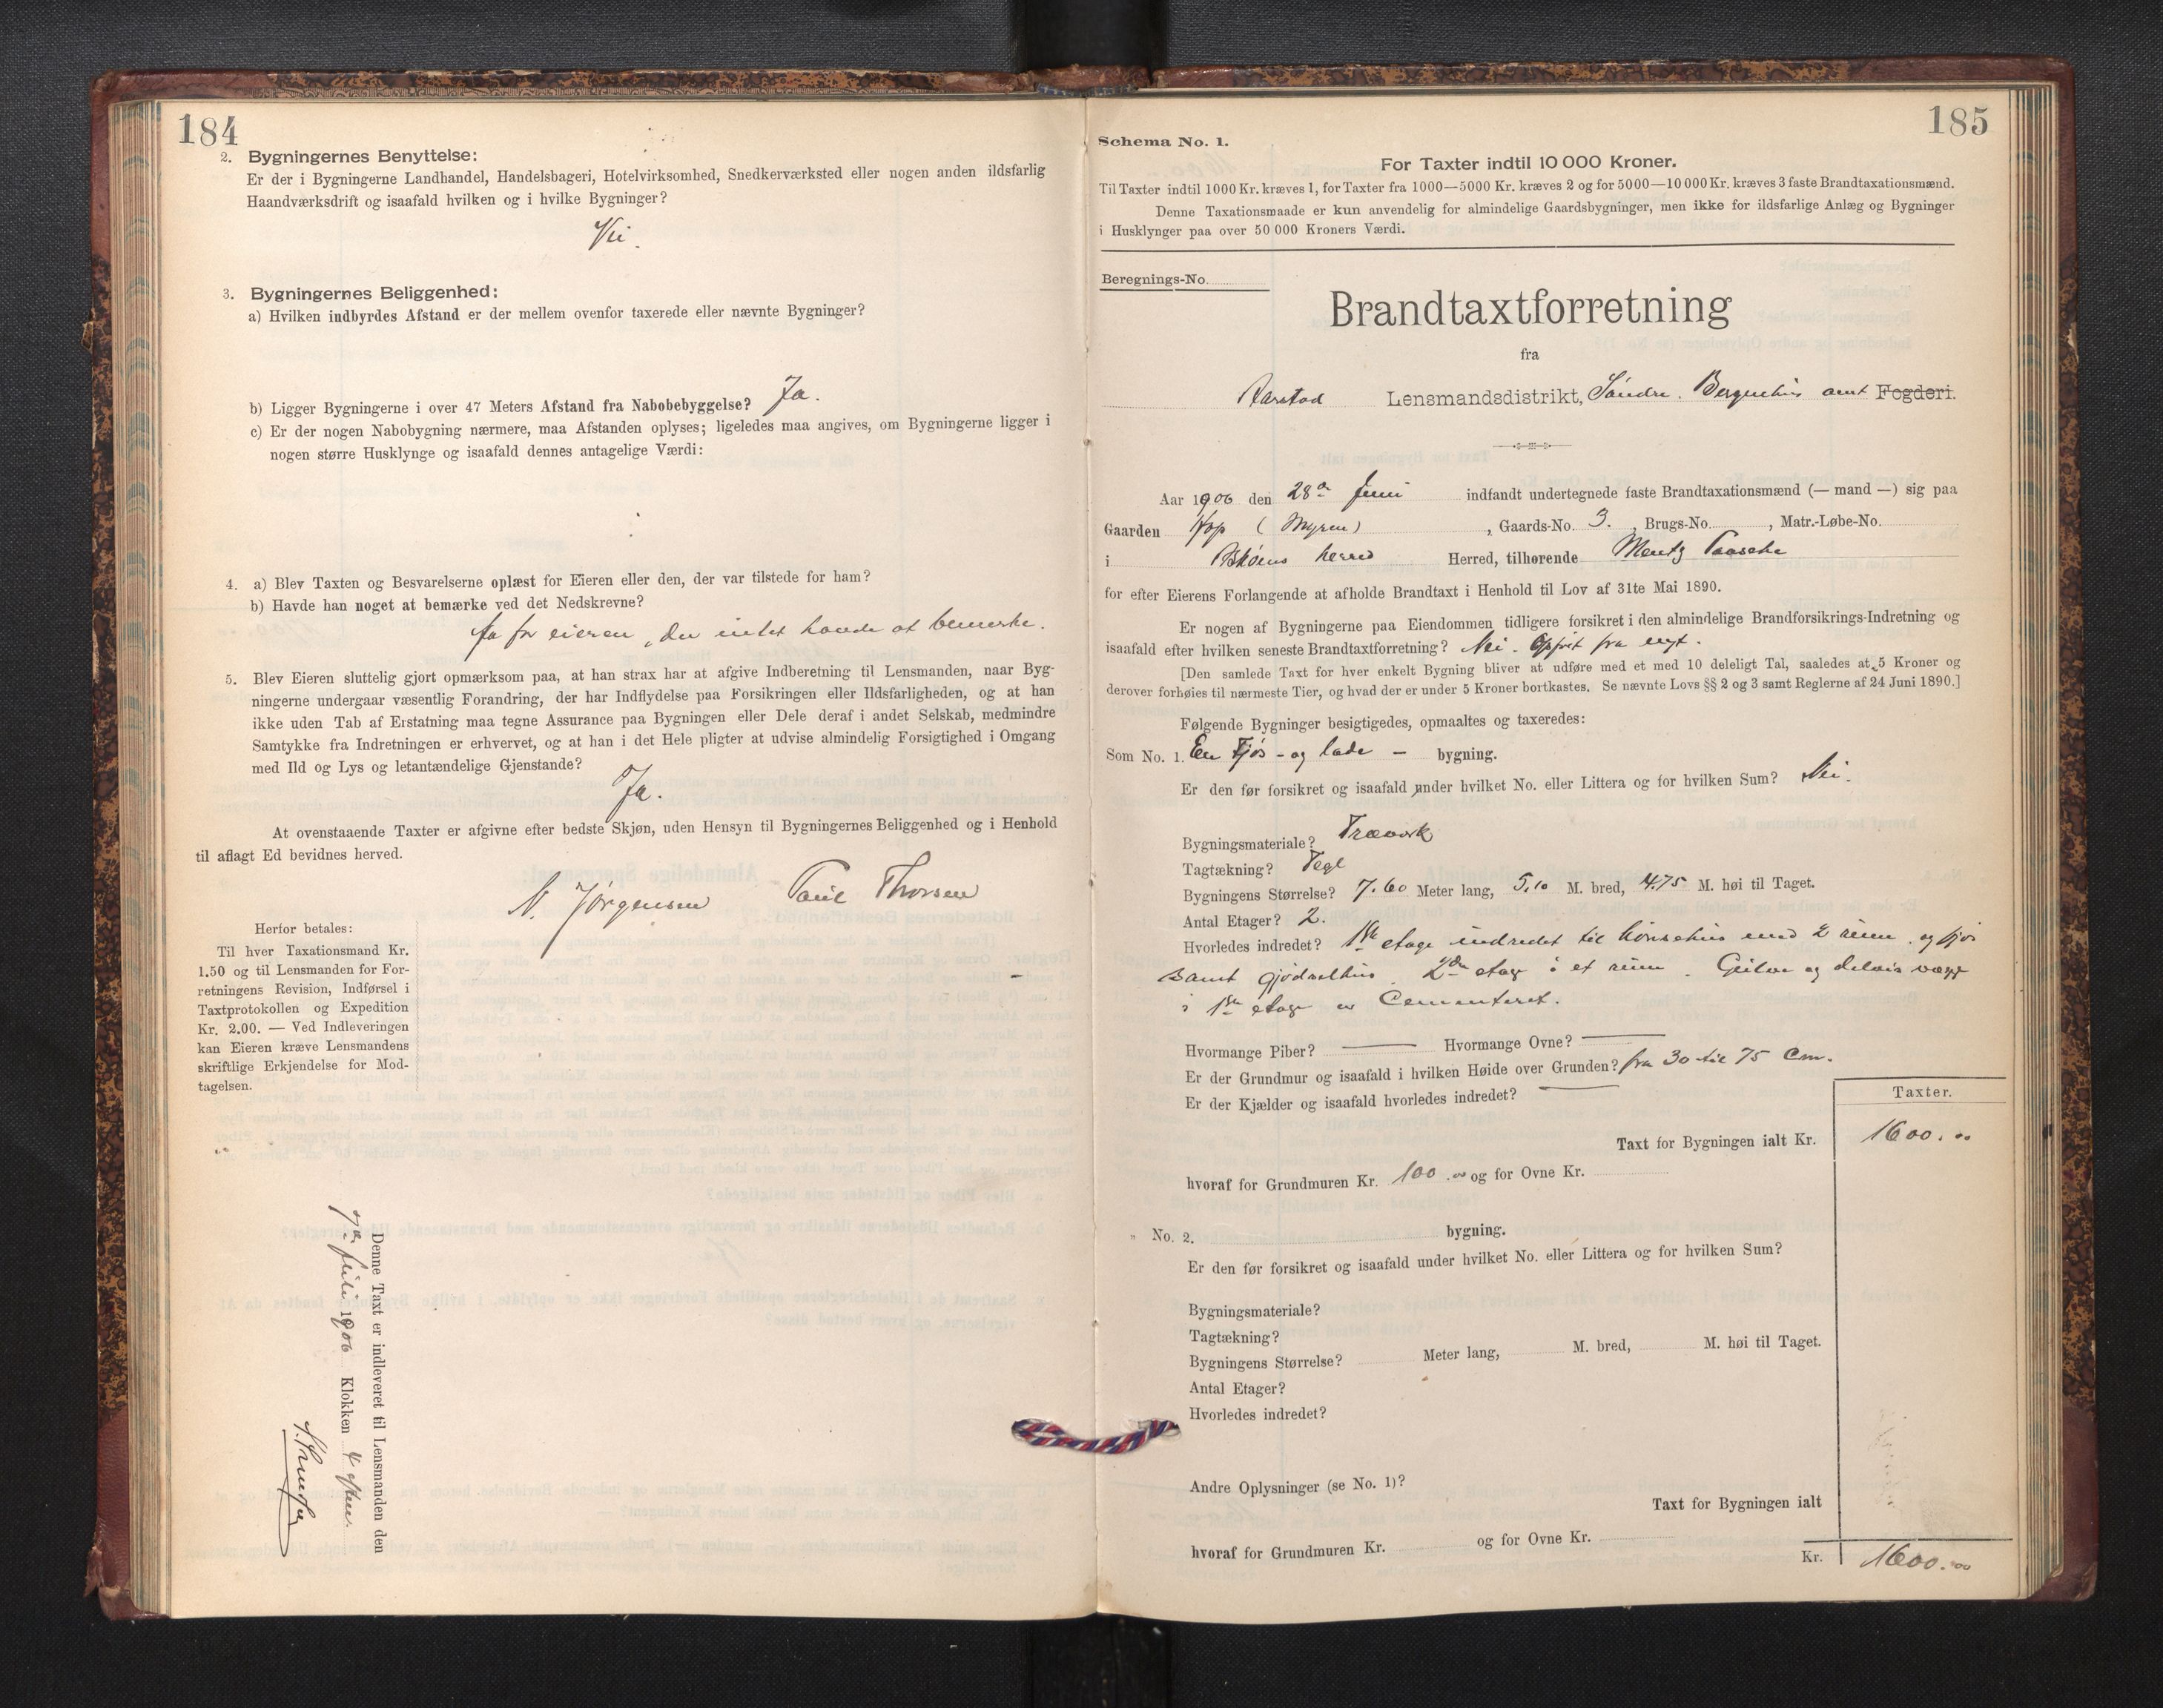 184
2. Bygningernes Benyttelse:
Er der i Bygningerne Landhandel, Handelsbageri, Hotelvirksomhed, Snedkerværksted eller nogen anden ildsfarlig
Haandværksdrift og isaafald hvilken og i hvilke Bygninger?
Nei.
3. Bygningernes Beliggenhed:
a) Hvilken indbyrdes Afstand er der mellem ovenfor taxerede eller nævnte Bygninger?
b) Ligger Bygningerne i over 47 Meters Afstand fra Nabobebyggelse? Ja.
c) Er der nogen Nabobygning nærmere, maa Afstanden oplyses; ligeledes maa angives, om Bygningerne ligger i
nogen større Husklynge og isaafald dennes antagelige Værdi:
4. a) Blev Taxten og Besvarelserne oplæst for Eieren eller den, der var tilstede for ham?
b) Havde han noget at bemærke ved det Nedskrevne?
Ja for eieren, der intet havde at bemerke.
5. Blev Eieren sluttelig gjort opmærksom paa, at han strax har at afgive Indberetning til Lensmanden, naar Byg-
ningerne undergaar væsentlig Forandring, der har Indflydelse paa Forsikringen eller Ildsfarligheden, og at han
ikke uden Tab af Erstatning maa tegne Assurance paa Bygningen eller Dele deraf i andet Selskab, medmindre
Samtykke fra Indretningen er erhvervet, og at han i det Hele pligter at udvise almindelig Forsigtighed i Omgang
med Ild og Lys og letantændelige Gjenstande?
Ja.
At ovenstaaende Taxter er afgivne efter bedste Skjøn, uden Hensyn til Bygningernes Beliggenhed og i Henhold
til aflagt Ed bevidnes herved.
N. Jørgensen Paul Thorsen
Herfor betales:
Til hver Taxationsmand Kr.
1.50 og til Lensmanden for For-
retningens Revision, Indførsel i
Taxtprotokollen og Expedition
Kr. 2.00. — Ved Indleveringen
kan Eieren kræve Lensmandens
skriftlige Erkjendelse for Mod-
tagelsen.
Denne Taxt er indleveret til Lensmanden den
7de juli 1906 Klokken 4 efterm.
185
Schema No. 1.
For Taxter indtil 10 000 Kroner.
Til Taxter indtil 1000 Kr. kræves 1, for Taxter fra 1000—5000 Kr. kræves 2 og for 5000—10 000 Kr. kræves 3 faste Brandtaxationsmænd.
Denne Taxationsmaade er kun anvendelig for almindelige Gaardsbygninger, men ikke for ildsfarlige Anlæg og Bygninger
i Husklynger paa over 50 000 Kroners Værdi.
Beregnings-No.
Brandtaxtforretning
fra
Aarstad Lensmandsdistrikt, Søndre Bergenhus amt Fogderi.
Aar 1906 den 28de Juni indfandt undertegnede faste Brandtaxationsmænd (— mand —) sig paa
Gaarden Hop (Myren), Gaards-No. 3., Brugs-No. , Matr.-Løbe-No.
i Askøens herred Herred, tilhørende Mentz Paasche
for efter Eierens Forlangende at afholde Brandtaxt i Henhold til Lov af 31te Mai 1890.
Er nogen af Bygningerne paa Eiendommen tidligere forsikret i den almindelige Brandforsikrings-Indretning og
isaafald efter hvilken seneste Brandtaxtforretning? Nei. Opført fra nyt.
[Den samlede Taxt for hver enkelt Bygning bliver at udføre med et med 10 deleligt Tal, saaledes at 5 Kroner og
derover forhøies til nærmeste Tier, og hvad der er under 5 Kroner bortkastes. Se nævnte Lovs §§ 2 og 3 samt Reglerne af 24 Juni 1890.]
Følgende Bygninger besigtigedes, opmaaltes og taxeredes:
Som No. 1. En Fjøs - og lade - bygning.
Er den før forsikret og isaafald under hvilket No. eller Littera og for hvilken Sum? Nei.
Bygningsmateriale? Træverk
Tagtækning? Tegl
Bygningens Størrelse? 7.60 Meter lang, 5.10 M. bred, 4.75 M. høi til Taget.
Antal Etager? 2.
Hvorledes indredet? 1ste etage indredet til hønsehus med 2 rum og fjøs
samt gjødselhus. 2den etage i et rum. Gulve og delvis vægge
i 1ste etage er Cementeret.
Hvormange Piber? — Hvormange Ovne? —
Er der Grundmur og isaafald i hvilken Høide over Grunden? fra 30 til 75 Cm.
Er der Kjælder og isaafald hvorledes indredet? —
Taxter.
Taxt for Bygningen ialt Kr. 1600.00
hvoraf for Grundmuren Kr. 100.00 og for Ovne Kr.
" No. 2. bygning.
Er den før forsikret og isaafald under hvilket No. eller Littera og for hvilken Sum?
Bygningsmateriale?
Tagtækning?
Bygningens Størrelse? Meter lang, M. bred, M. høi til Taget.
Antal Etager?
Hvorledes indredet?
Andre Oplysninger (se No. 1)?
Taxt for Bygningen ialt
hvoraf for Grundmuren Kr. og for Ovne Kr.
Kr. 1600.00